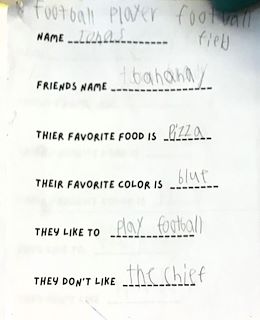 football player football
NAME Jonas field
FRIENDS NAME
THIER FAVORITE FOOD IS Pizza
THEIR FAVORITE COLOR IS blue
THEY LIKE TO play football
THEY DON'T LIKE the chief